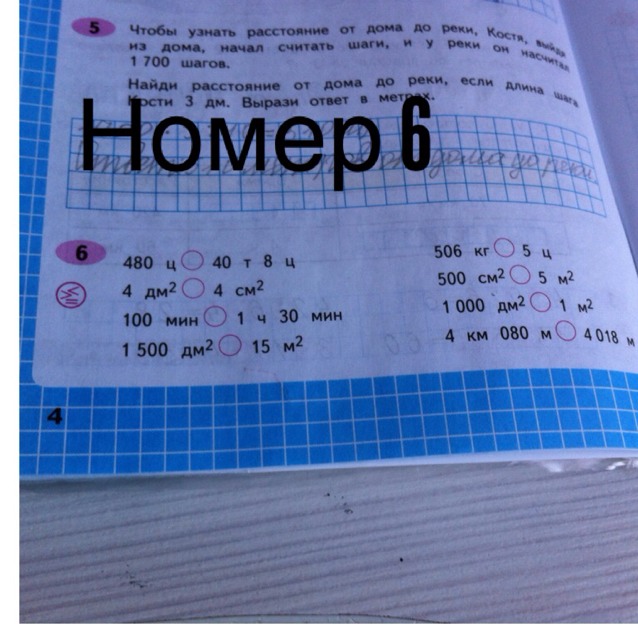 5 Чтобы узнать расстояние от дома до реки, Костя, выйдя
из дома, начал считать шаги, и у реки он насчитал
1 700 шагов.
Найди расстояние от дома до реки, если длина шага
Кости 3 дм. Вырази ответ в метрах.
Номер 6
дома до реки
6
480 ц 40 т 8 ц
4 дм² 4 см²
100 мин 1 ч 30 мин
1 500 дм² 15 м²
506 кг 5 ц
500 см² 5 м²
1 000 дм² 1 м²
4 км 080 м 4 018 м
4